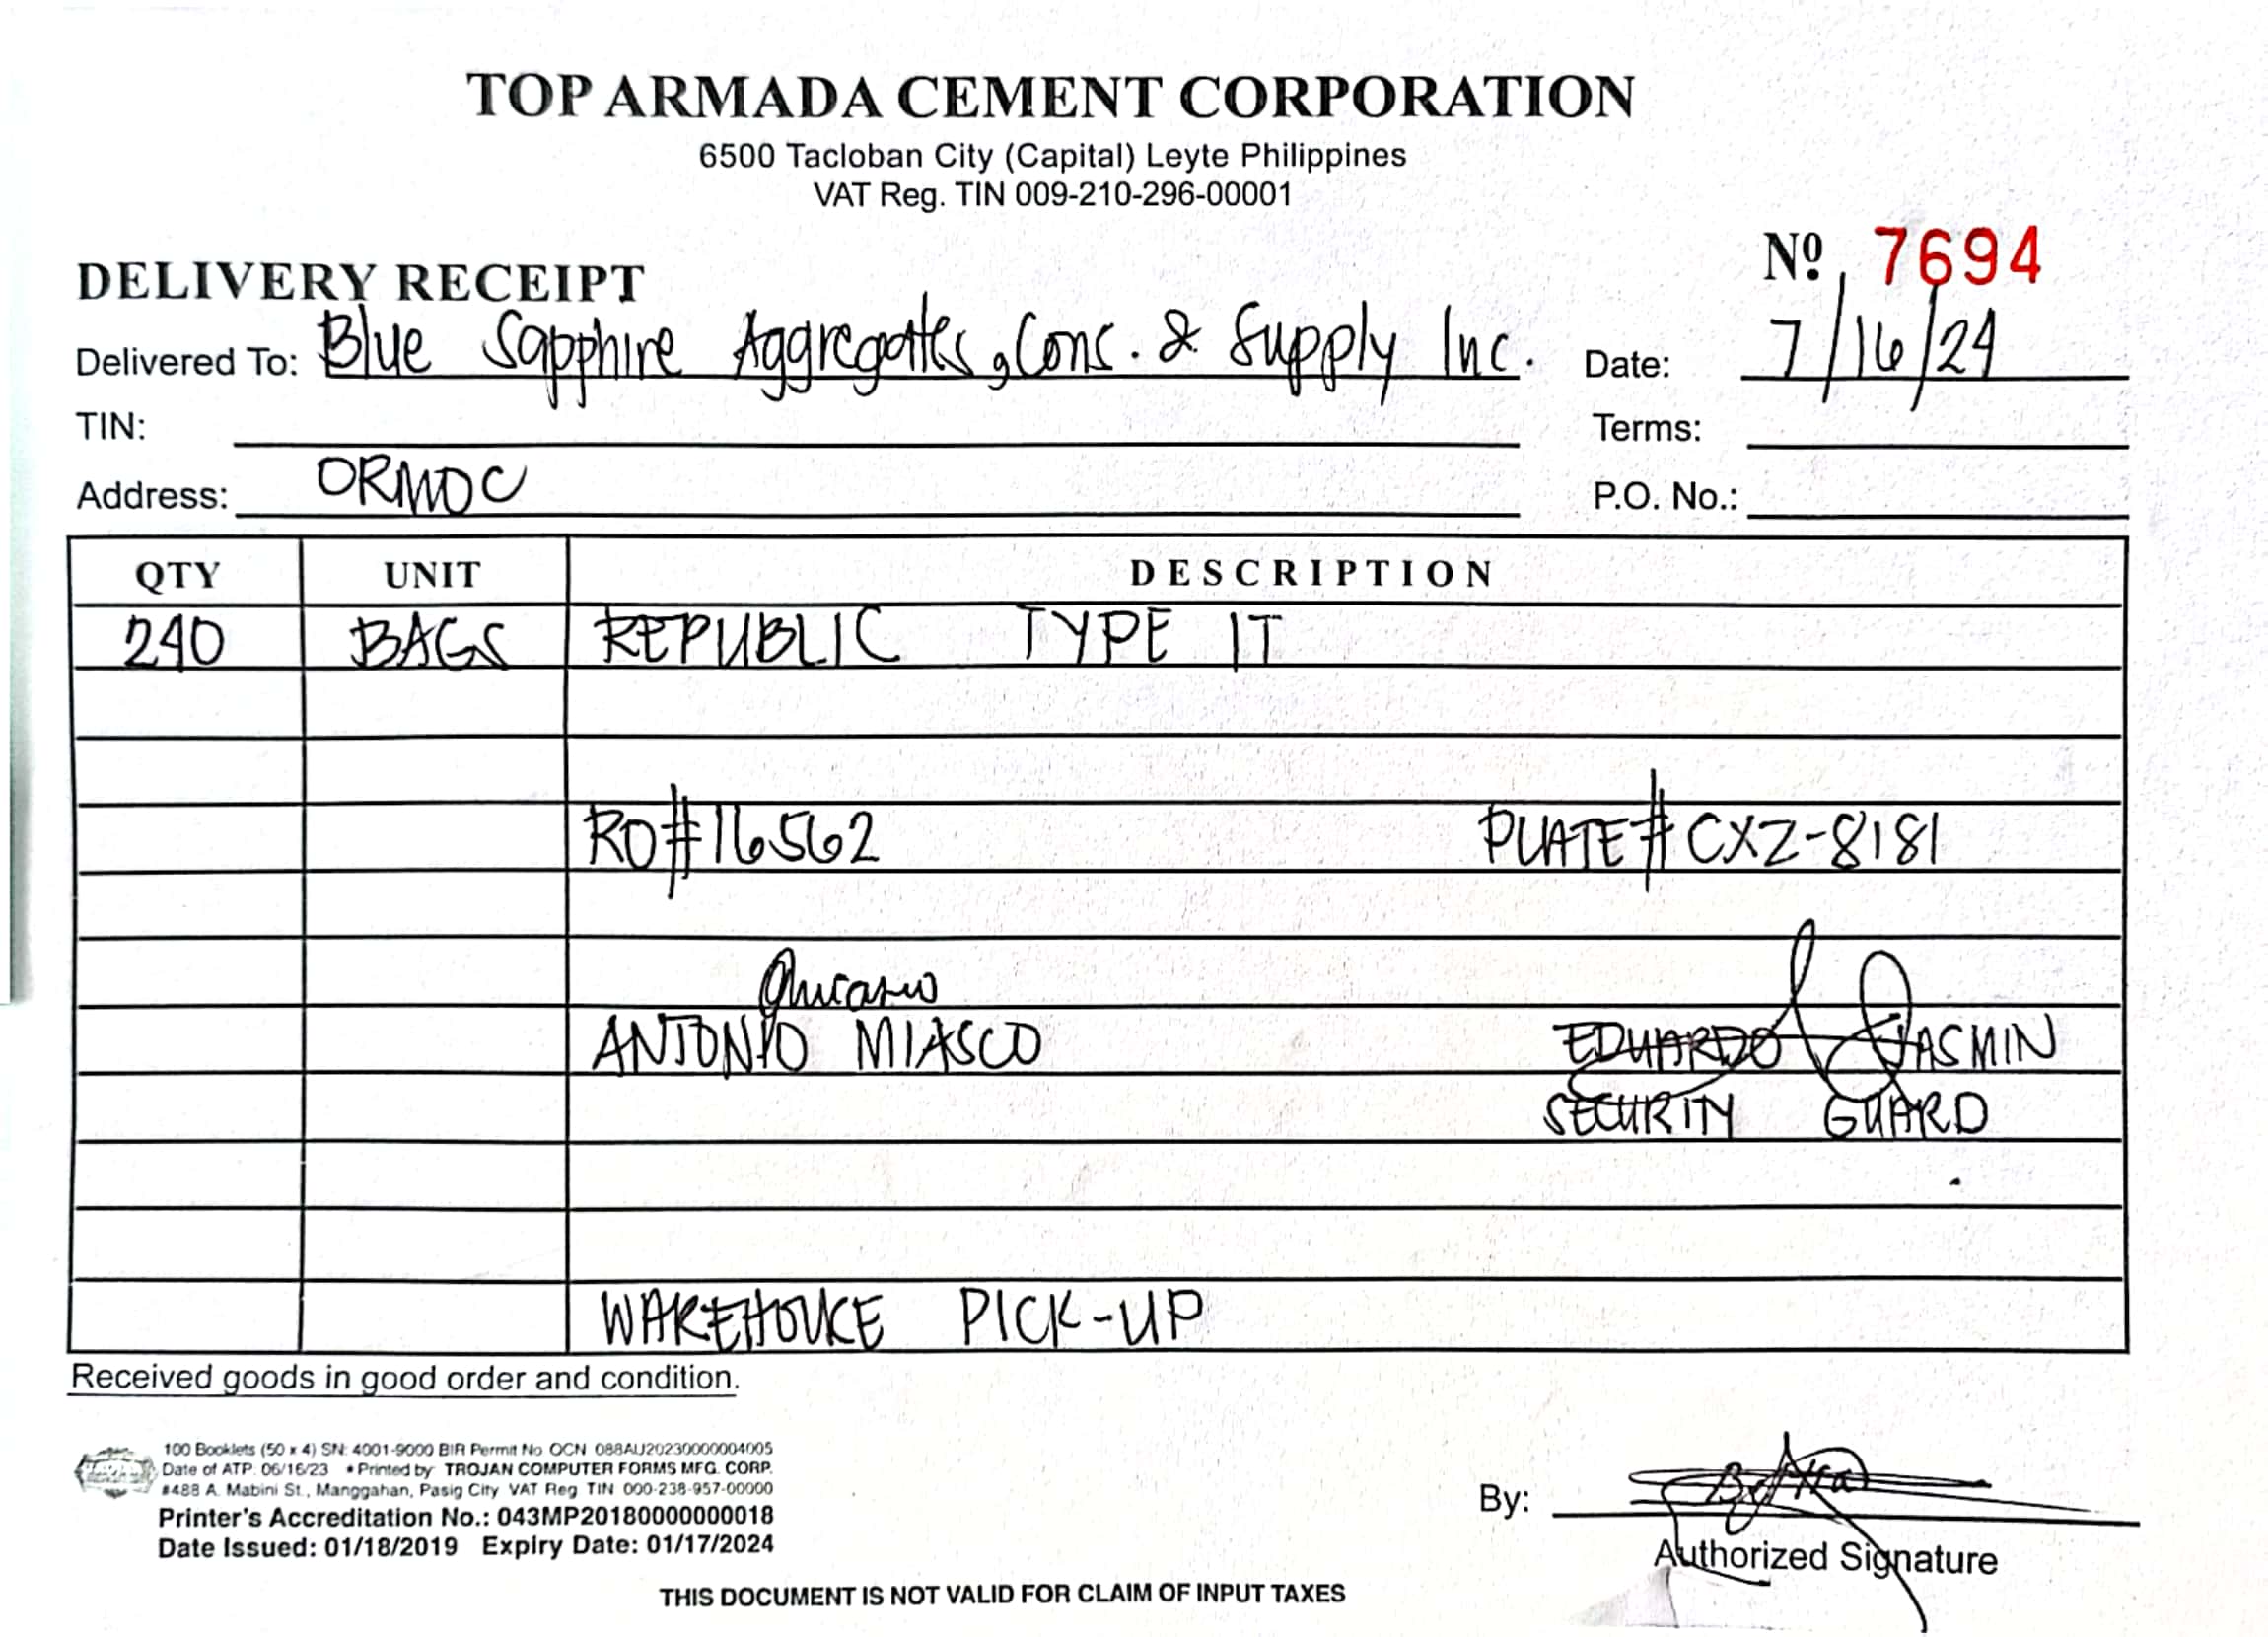 TOP ARMADA CEMENT CORPORATION
6500 Tacloban City (Capital) Leyte Philippines
VAT Reg. TIN 009-210-296-00001
DELIVERY RECEIPT
Nº 7694
Delivered To: Blue Sapphire Aggregates, Cons. & Supply Inc.
Date: 7/16/24
TIN:
Terms:
Address: ORMOC
P.O. No.:
QTY UNIT DESCRIPTION
240 BAGS REPUBLIC TYPE IT
RO#16562 PLATE# CXZ-8181
ANTONIO MIASCO EDUARDO JASMIN
SECURITY GUARD
WAREHOUSE PICK-UP
Received goods in good order and condition.
100 Booklets (50 x 4) SN: 4001-9000 BIR Permit No OCN 088AU20230000004005
Date of ATP. 06/16/23 • Printed by: TROJAN COMPUTER FORMS MFG. CORP.
#488 A. Mabini St., Manggahan, Pasig City VAT Reg TIN 000-238-957-00000
Printer's Accreditation No.: 043MP20180000000018
Date Issued: 01/18/2019 Expiry Date: 01/17/2024
By:
Authorized Signature
THIS DOCUMENT IS NOT VALID FOR CLAIM OF INPUT TAXES